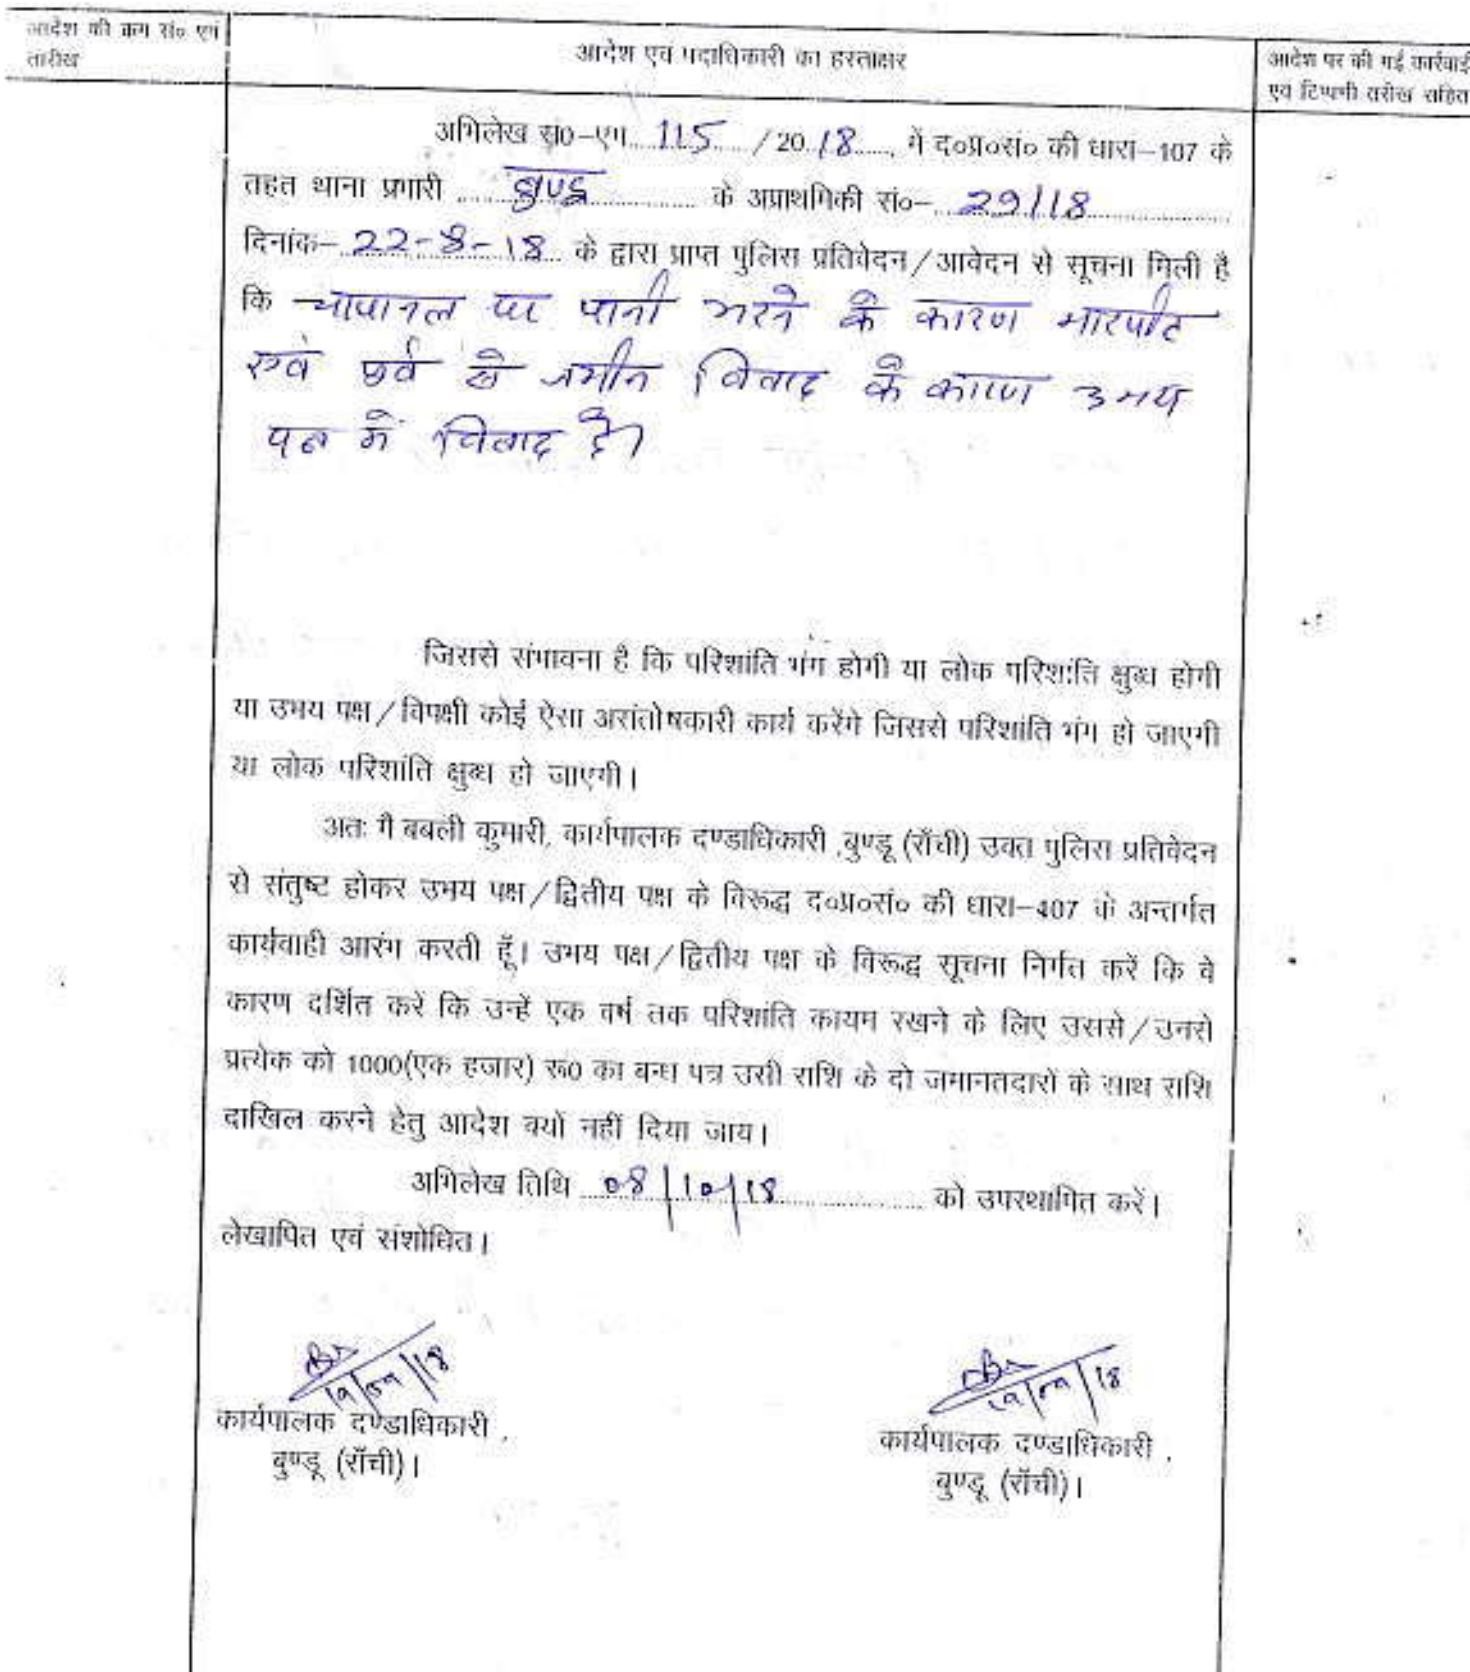 आदेश की क्रम सं० एवं
तारीख
आदेश एवं पदाधिकारी का हस्ताक्षर
आदेश पर की गई कार्रवाई
एवं टिप्पणी तारीख सहित
अभिलेख सं0-एम 115 /2018, में द०प्र०सं० की धारा-107 के
तहत थाना प्रभारी बुण्डू के अप्राथमिकी सं०- 29/18
दिनांक- 22-8-18 के द्वारा प्राप्त पुलिस प्रतिवेदन/आवेदन से सूचना मिली है
कि चापानल पर पानी भरने के कारण मारपीट
एवं पूर्व से जमीन विवाद के कारण उभय
पक्ष में विवाद है।
जिससे संभावना है कि परिशांति भंग होगी या लोक परिशांति क्षुब्ध होगी
या उभय पक्ष/विपक्षी कोई ऐसा असंतोषकारी कार्य करेंगे जिससे परिशांति भंग हो जाएगी
या लोक परिशांति क्षुब्ध हो जाएगी।
अतः मैं बबली कुमारी, कार्यपालक दण्डाधिकारी ,बुण्डू (राँची) उक्त पुलिस प्रतिवेदन
से संतुष्ट होकर उभय पक्ष/द्वितीय पक्ष के विरूद्ध द०प्र०सं० की धारा-107 के अन्तर्गत
कार्यवाही आरंभ करती हूँ। उभय पक्ष/द्वितीय पक्ष के विरूद्ध सूचना निर्गत करें कि वे
कारण दर्शित करें कि उन्हें एक वर्ष तक परिशांति कायम रखने के लिए उससे/उनसे
प्रत्येक को 1000(एक हजार) रू0 का बन्ध पत्र उसी राशि के दो जमानतदारों के साथ राशि
दाखिल करने हेतु आदेश क्यों नहीं दिया जाय।
अभिलेख तिथि 08/10/18 को उपस्थापित करें।
लेखापित एवं संशोधित।
कार्यपालक दण्डाधिकारी,
बुण्डू (राँची)।
कार्यपालक दण्डाधिकारी,
बुण्डू (राँची)।